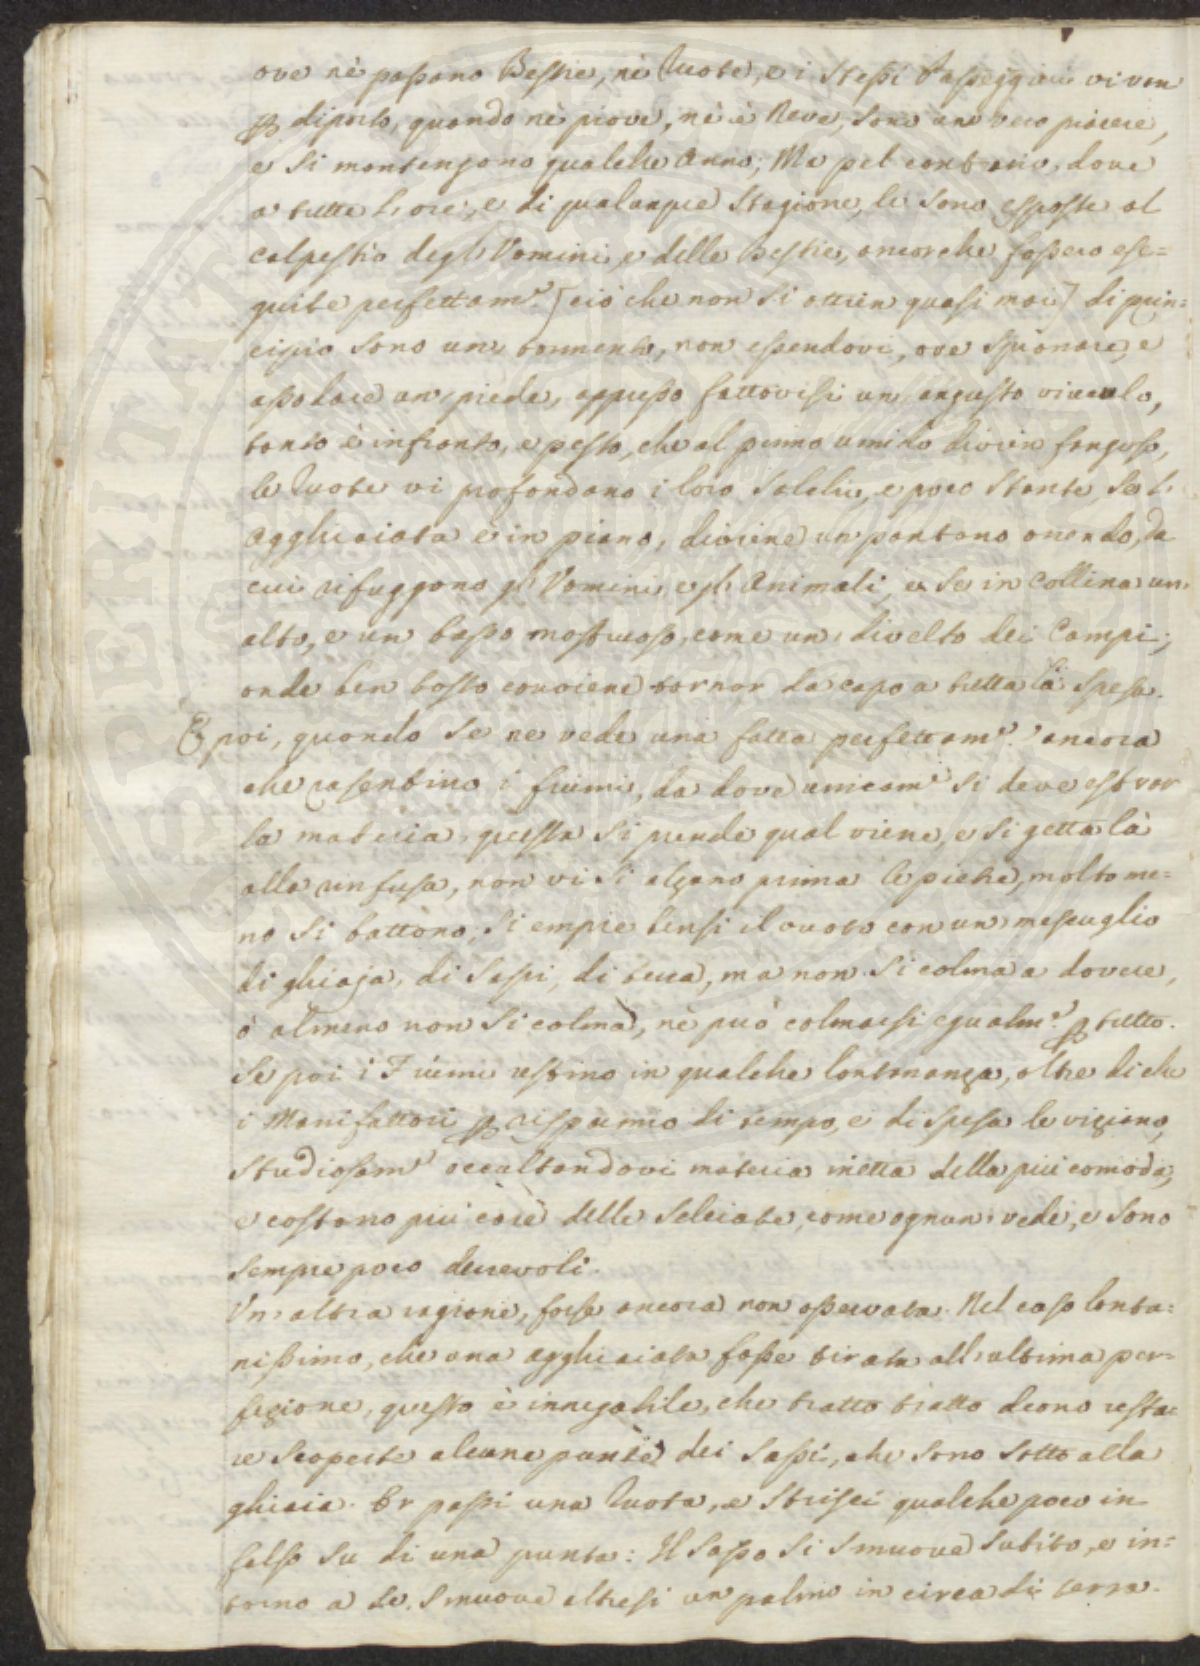 ove nè passano Bestie, nè Ruote, e i stessi Passeggieri vi van
p diporto, quando nè piove, nè è Neve, sono un vero piacere,
e si mantengono qualche Anno; Ma pel contrario, dove
a tutte l'ore, e di qualunque Stagione, le sono esposte al
calpestio degl'Uomini, e delle Bestie, ancorche fossero ese=
guite perfettam.e [ciò che non si ottien quasi mai] di prin=
cipio sono un tormento, non essendovi, ove spianare, e
assodare un piede, appresso fattovisi un angusto viuculo,
tanto è infranto, e pesto, che al primo umido divien fangoso,
le Ruote vi profondano i loro solchi, e poco stante, se l'
agghiaiata è in piano, diviene un pantano orrendo, da
cui rifuggono gl'Uomini, e gl'Animali, e se in Collina un'
alto, e un basso mostruoso, come un divelto dei Campi;
onde ben tosto conviene tornar da capo a tutta la spesa.
E poi, quando se ne vede una fatta perfettam.e? ancora
che rasentino i fiumi, da dove unicam.e si deve estrar
la materia, questa si prende qual viene, e si getta là
alla rinfusa, non vi si alzano prima le pietre, molto me=
no si battono; si empie bensi il vuoto con un mescuglio
di ghiaja, di sassi, di terra, ma non si colma a dovere,
ò almeno non si colma, nè può colmarsi egualm.e p tutto.
Se poi i Fiumi restino in qualche lontananza, oltre di che
i Manifattori p risparmio di tempo, e di spesa le viziano,
studiosam.e occultandovi materia inetta della più comoda,
e costano più care delle Selciate, come ognun vede, e sono
sempre poco durevoli.
Un'altra ragione, forse ancora non osservata. Nel caso lonta=
nissimo, che una agghiaiata fosse tirata all'ultima per=
fezione, questo è innegabile, che tratto tratto deono resta=
re scoperte alcune punte dei sassi, che sono sotto alla
ghiaia. Or passi una Ruota, e strisci qualche poco in
falso su di una punta: Il sasso si smuove subito, e in=
torno a se smuove altresi un palmo in circa di terra.